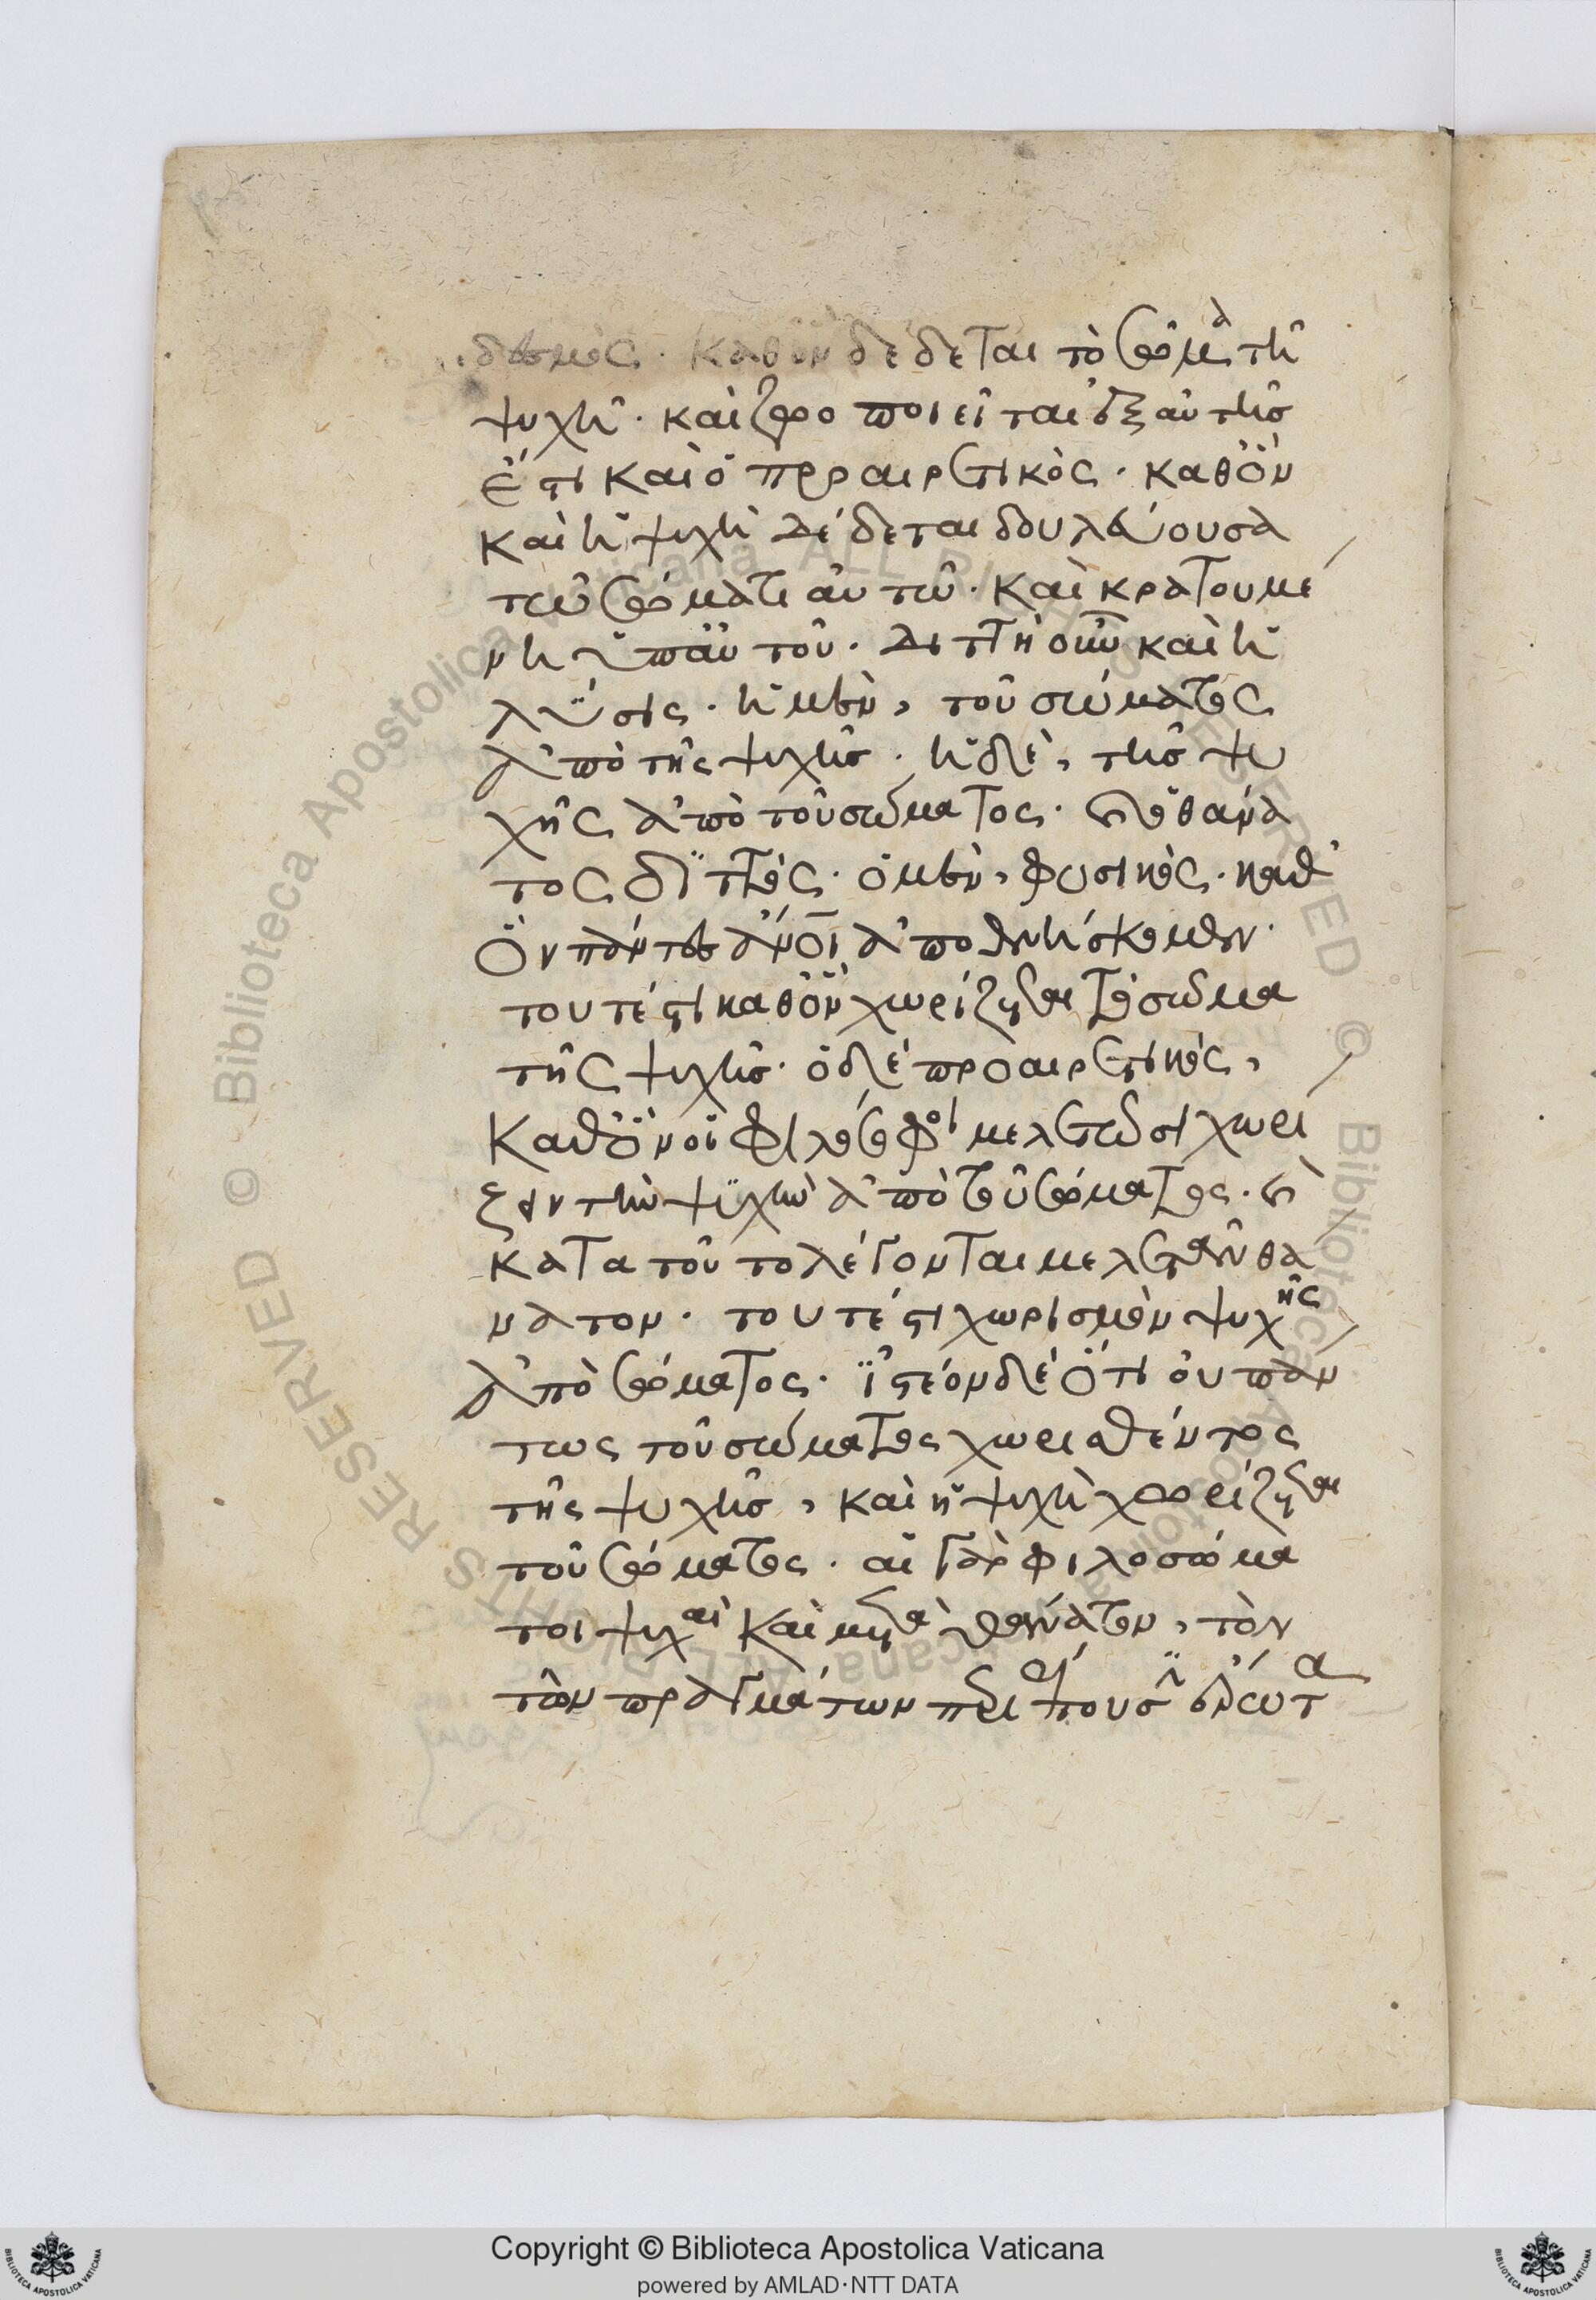 δεσμὸς. καθὸν δέδεται τὸ σῶμα τῆ
ψυχῆ. καὶ ζωοποιεῖται ἐξ αὐτῆς
ἔστι καὶ ὁ προαιρετικὸς. καθὸν
καὶ ἡ ψυχὴ δέδεται δουλεύουσα
τῶ σώματι αὐτῶ. καὶ κρατουμέ
νη ὑπ αὐτοῦ. διττὴ οὖν καὶ ἡ
λύσις. ἡ μὲν, τοῦ σώματος
ἀπὸ τῆς ψυχῆς. ἡ δὲ, τῆς ψυ
χῆς ἀπὸ τοῦ σώματος. καὶ ὁ θάνα
τος διττὸς. ὁ μὲν, φυσικὸς. καθ'
ὃν πάντες ἄνοι ἀποθνήσκομεν.
τουτέστι καθὸν χωρίζεται τὸ σῶμα
τῆς ψυχῆς. ὁ δὲ προαιρετικὸς,
καθὸν οἱ φιλόσοφοι μελετῶσι χωρί
ζειν τὴν ψυχὴν ἀπὸ τοῦ σώματος. καὶ
κατα τοῦτο λέγονται μελετᾶν θά
νατον. τουτέστι χωρισμὸν ψυχῆς
ἀπὸ σώματος. ἰστέον δὲ ὅτι οὐ πάν
τως τοῦ σώματος χωρισθέντος
τῆς ψυχῆς, καὶ ἡ ψυχὴ χωρίζεται
τοῦ σώματος. αἱ γὰρ φιλοσώμα
τοι ψυχαὶ καὶ μετὰ θάνατον, τὸν
τῶν πραγμάτων
Copyright © Biblioteca Apostolica Vaticana
powered by AMLAD·NTT DATA